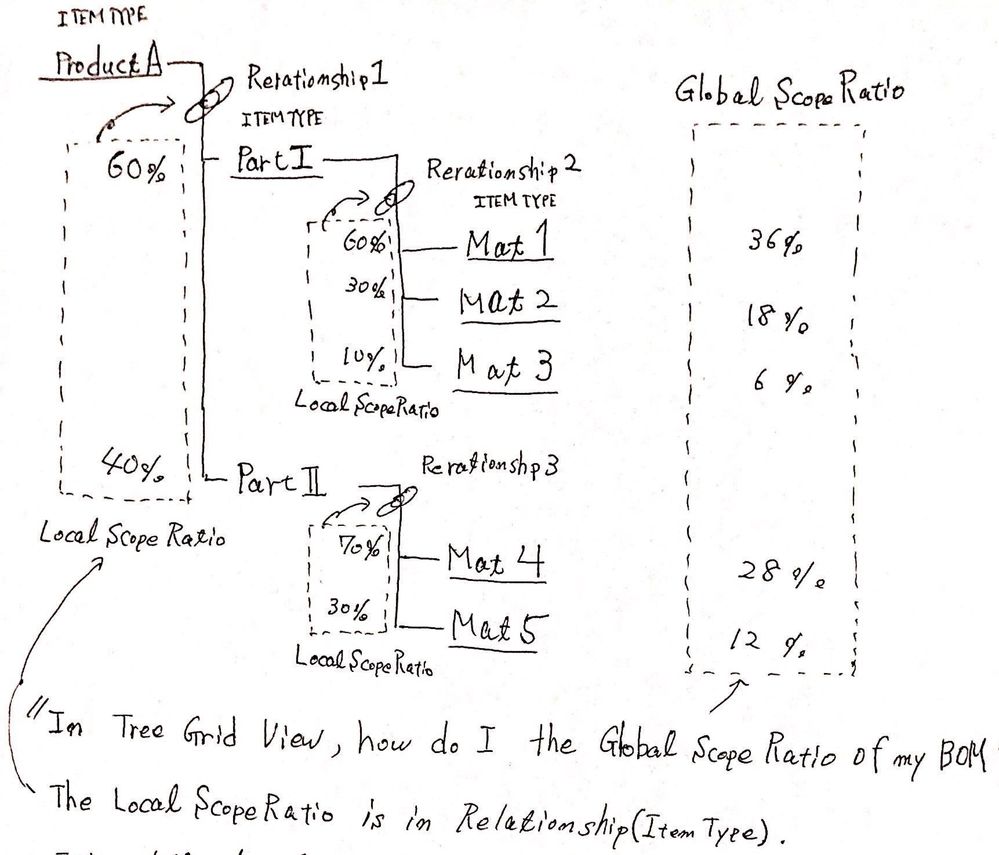 ITEM TYPE
Product A
Rerationship 1
ITEM TYPE
Global Scope Ratio
60%
Part I
Rerationship 2
ITEM TYPE
60%
Mat 1
36%
30%
Mat 2
18%
10%
Mat 3
6%
Local Scope Ratio
40%
Part II
Rerationshp 3
Local Scope Ratio
70%
Mat 4
28%
30%
Mat 5
12%
Local Scope Ratio
"In Tree Grid View, how do I the Global Scope Ratio of my BOM
The Local Scope Ratio is in Relationship(Item Type).